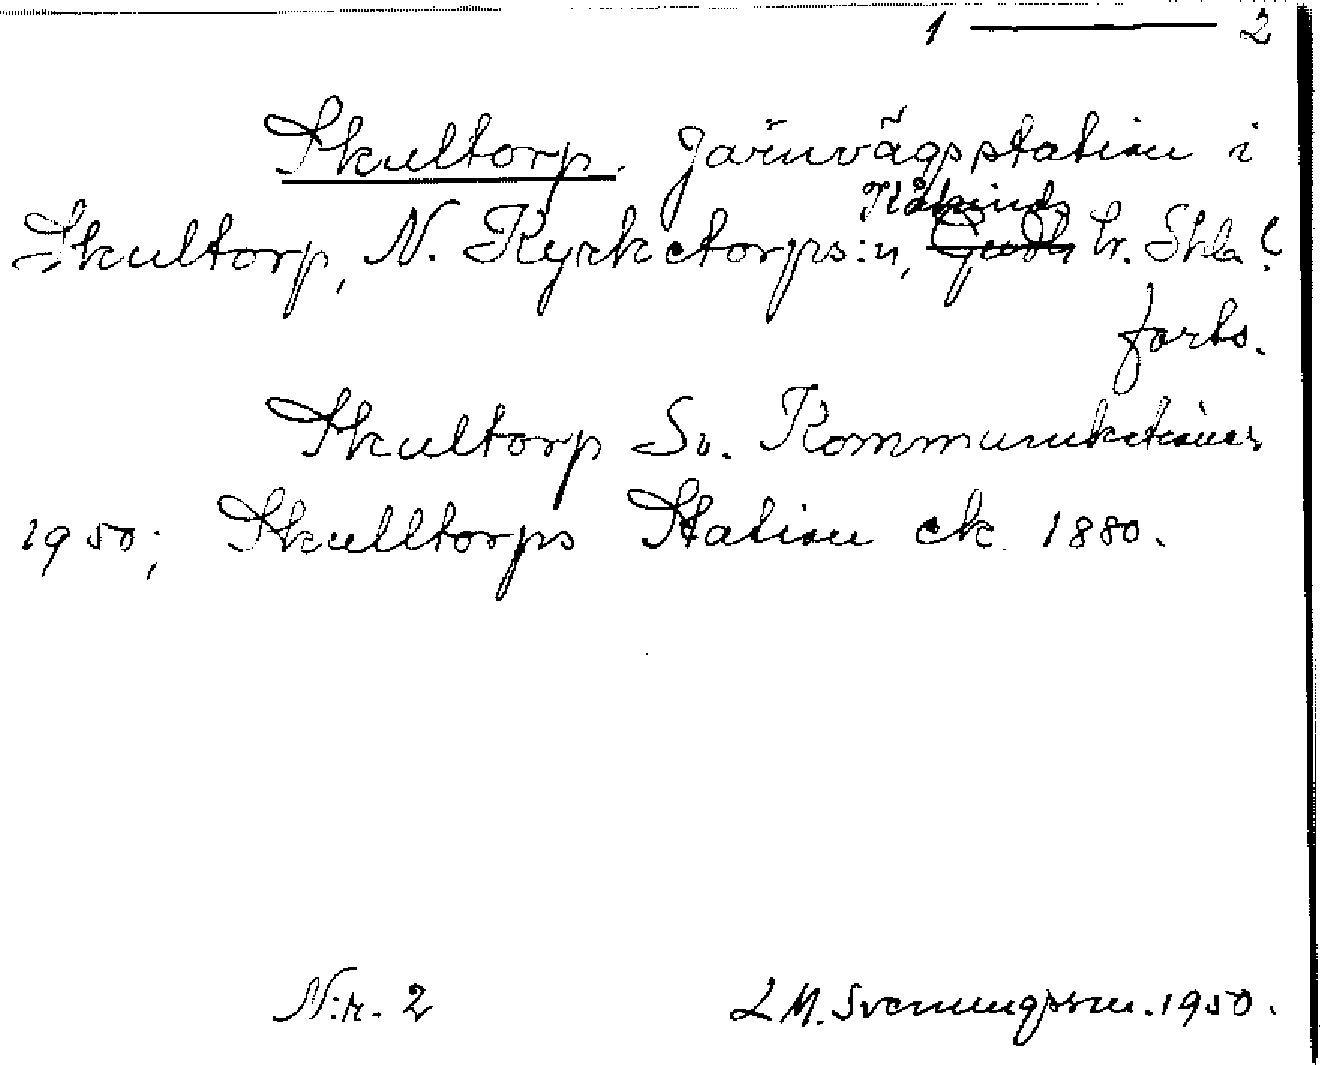 1 — 2
Skultorp. Järnvägsstation i
Kåkinds
Skultorp, N. Kyrketorps:n, Gudh hr. Skbl.
forts.
Skultorp Sv. Kommunikationer
1950; Skulltorps Station ek. 1880.
N:r. 2 L M. Svenungsson. 1950.